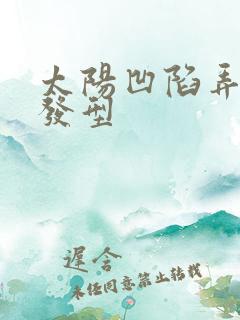 太陽凹陷弄
發型
遲含
未任同意禁止轉載